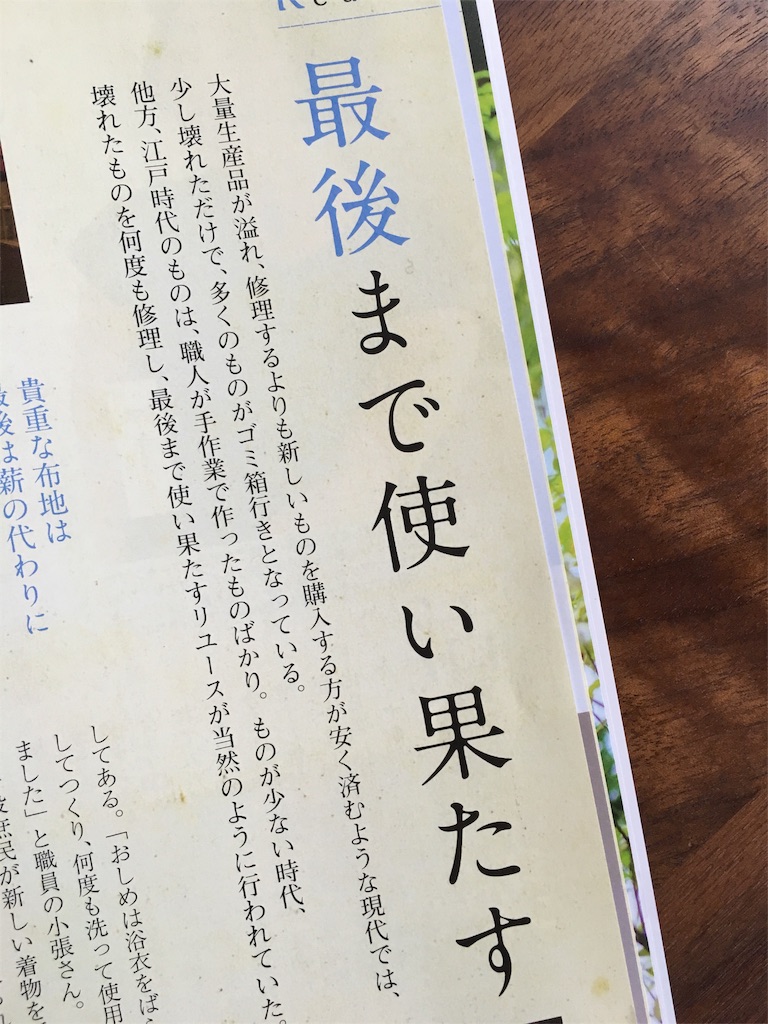 最後まで使い果たす
大量生産品が溢れ、修理するよりも新しいものを購入する方が安く済むような現代では、
少し壊れただけで、多くのものがゴミ箱行きとなっている。
他方、江戸時代のものは、職人が手作業で作ったものばかり。ものが少ない時代、
壊れたものを何度も修理し、最後まで使い果たすリユースが当然のように行われていた。
貴重な布地は
最後は薪の代わりに
してある。「おしめは浴衣をば
してつくり、何度も洗って使用
ました」と職員の小張さん。
庶民が新しい着物を